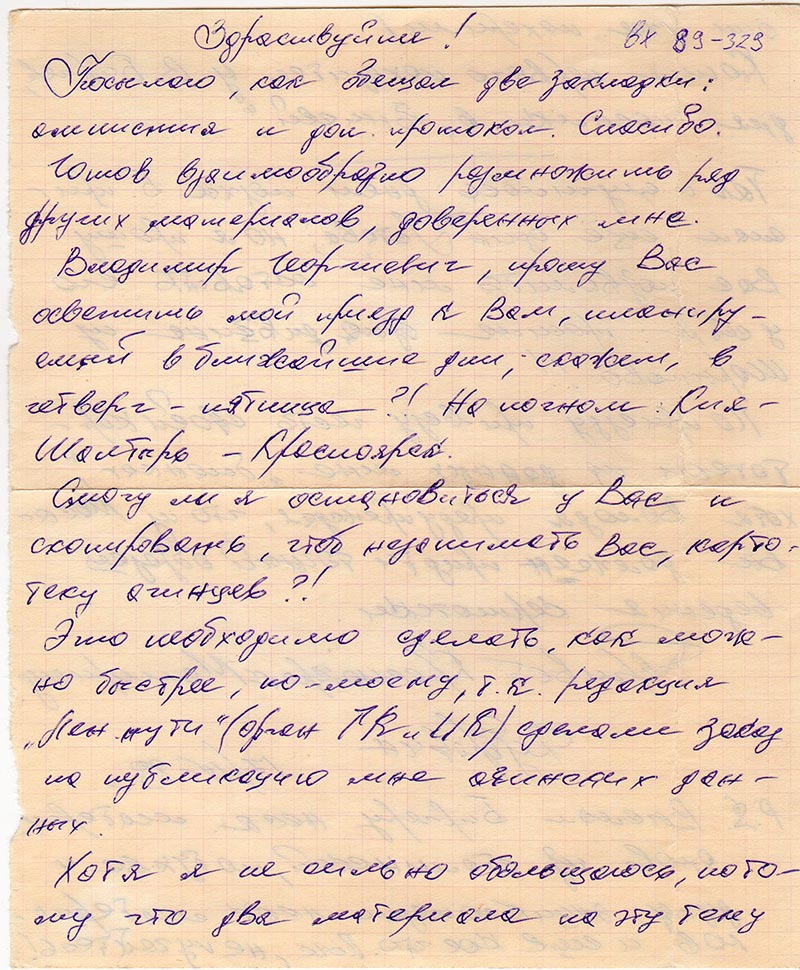 Здравствуйте! Вх 89-329
Посылаю, как обещал две закладки:
амнистия и доп. протокол. Спасибо.
Готов взаимообразно размножить ряд
других материалов, доверенных мне.
Владимир Георгиевич, прошу Вас
осветить мой приезд к Вам, планиру-
емый в ближайшие дни, скажем, в
четверг – пятница?! На ночном: Кия-
Шалтырь – Красноярск.
Смогу ли я остановиться у Вас и
скопировать, чтоб незанимать Вас, карто-
теку ачинцев?!
Это необходимо сделать, как мож-
но быстрее, по-моему, т.к. редакция
„Лен. пути" (орган ГК и ) сделали заказ
на публикацию мне ачинских дан-
ных.
Хотя я не сильно обольщаюсь, пото-
му что два материала на эту тему